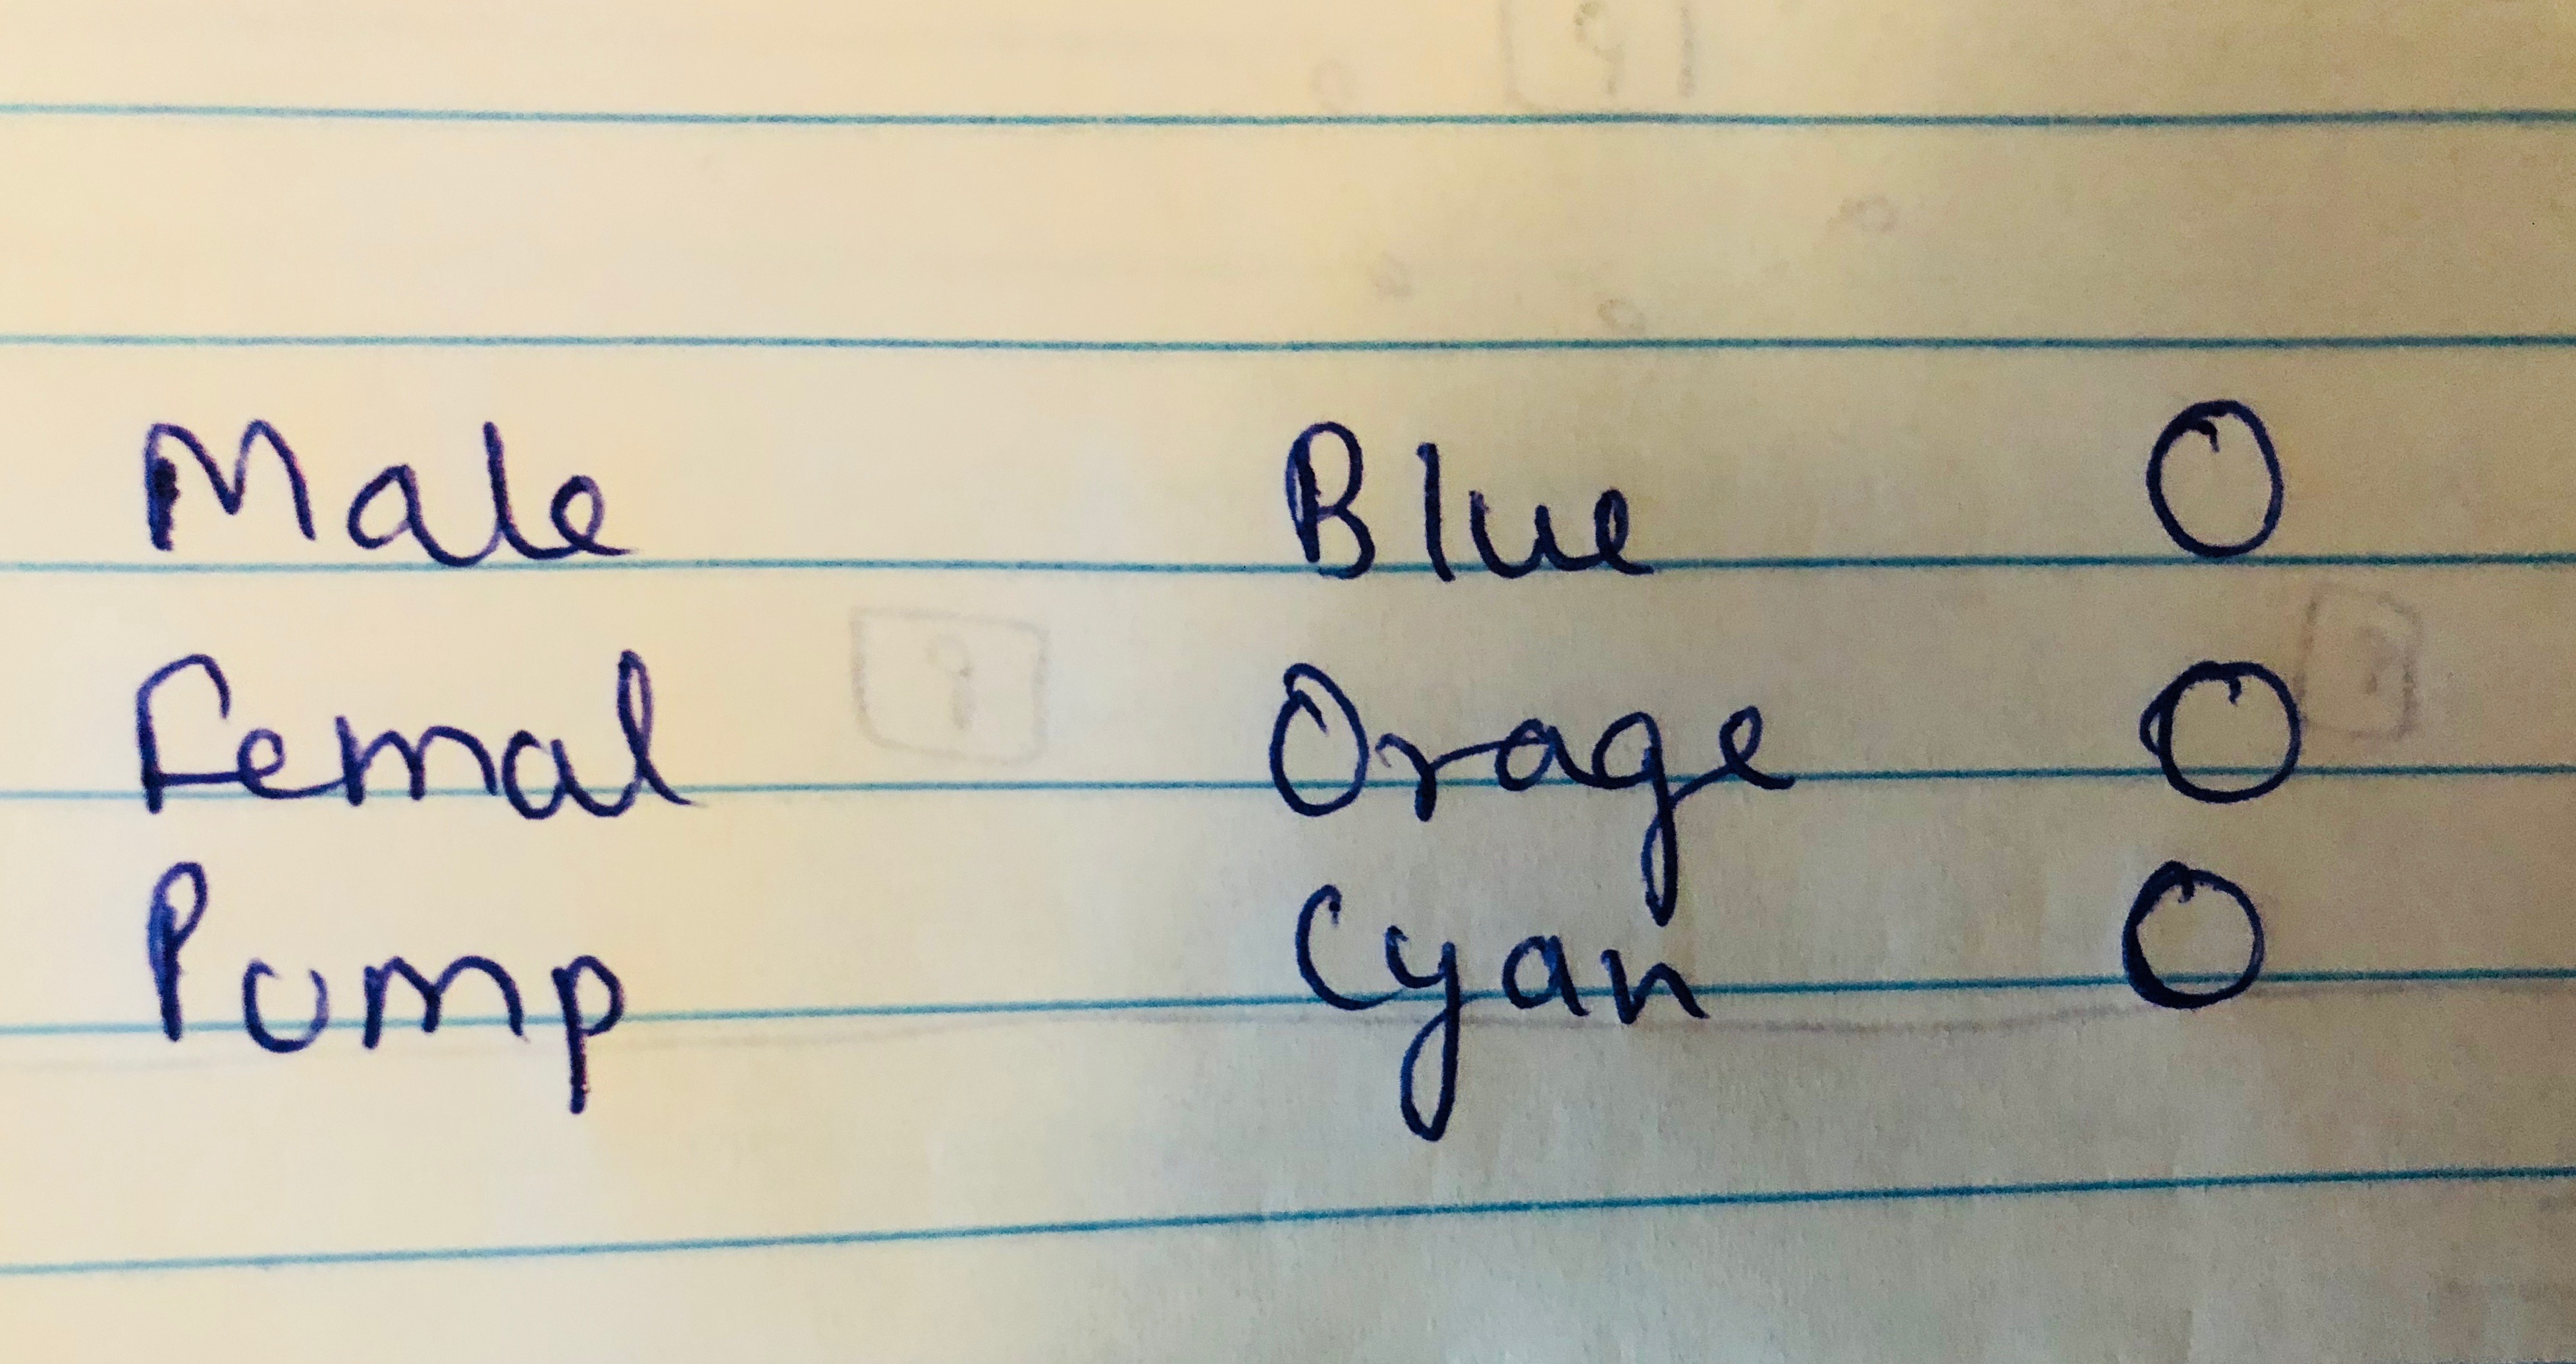 Male Blue O
Femal Orage O
Pump Cyan O